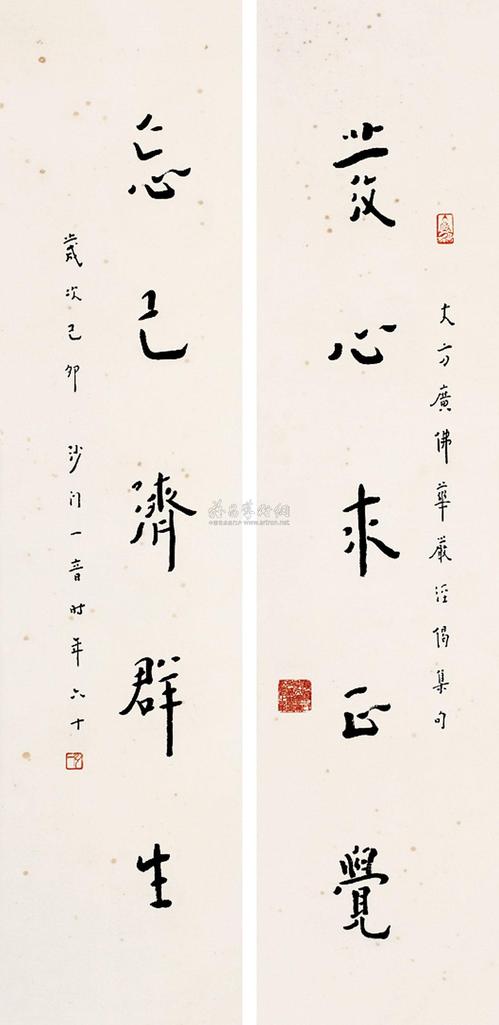 大方廣佛華嚴經偈集句
發心求正覺
忘己濟群生
歲次己卯 沙门一音时年六十
www.artron.net